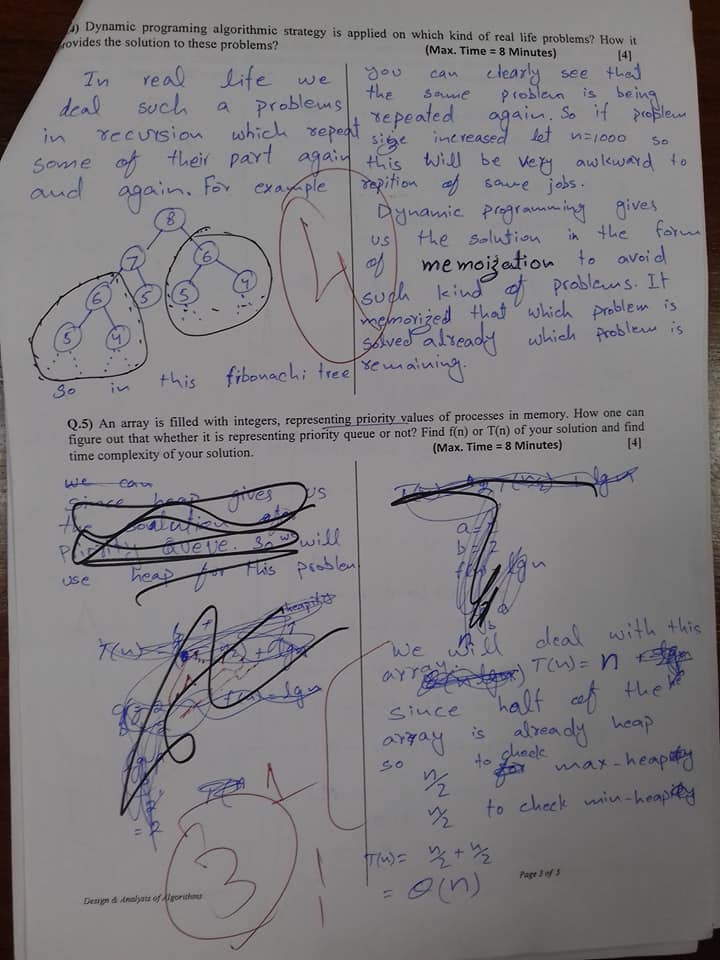 4) Dynamic programing algorithmic strategy is applied on which kind of real life problems? How it
rovides the solution to these problems?
(Max. Time = 8 Minutes)
[4]
In real life we
deal such a problems
in recursion which repeat
some of their part again
and again. For example
8
7
6
6
5
5
4
5
4
So in this fibonachi tree
you can clearly see that
the same problem is being
repeated again. So if problem
size increased let n=1000 so
this will be very awkward to
repition of same jobs.
Dynamic programming gives
us the solution in the form
of memoization to avoid
such kind of problems. It
memorized that which problem is
solved already which problem is
remaining.
4
Q.5) An array is filled with integers, representing priority values of processes in memory. How one can
figure out that whether it is representing priority queue or not? Find f(n) or T(n) of your solution and find
time complexity of your solution.
(Max. Time = 8 Minutes)
[4]
we can
since heap gives us
the
So we will
use heap for this problem
heapify
T(n)
lgn
= 2
a=
b=2
lgn
We will deal with this
array. T(n)= n
since half of the
array is already heap
so n/2 to check max-heap
n/2 to check min-heap
T(n)= n/2 + n/2
= θ(n)
3
Page 3 of 5
Design & Analysis of Algorithms